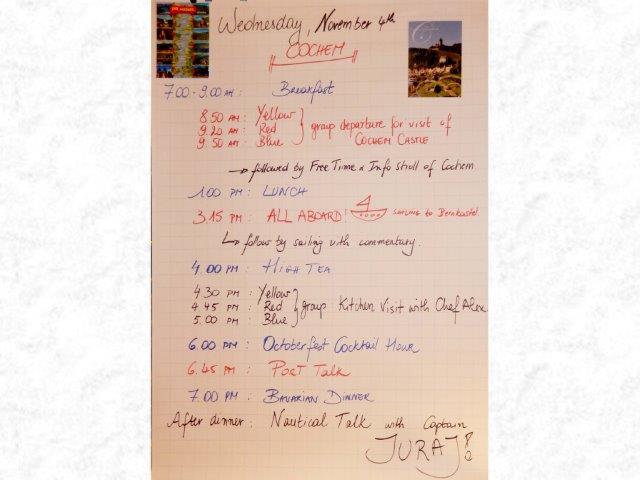 Wednesday, November 4th
COCHEM
7.00 - 9.00 AM : Breakfast
8.50 AM : Yellow
9.20 AM : Red
9.50 AM : Blue
group departure for visit of
COCHEM CASTLE
→ followed by Free Time & Info stroll of Cochem
1.00 PM : LUNCH
3.15 PM : ALL ABOARD! SAILING to Bernkastel.
↳ follow by sailing with commentary.
4.00 PM : HIGH TEA
4.30 PM : Yellow
4.45 PM : Red
5.00 PM : Blue
group Kitchen Visit with Chef Alex
6.00 PM : Octoberfest Cocktail Hour
6.45 PM : PORT TALK
7.00 PM : BAVARIAN DINNER
After dinner : Nautical Talk with Captain
JURAJ